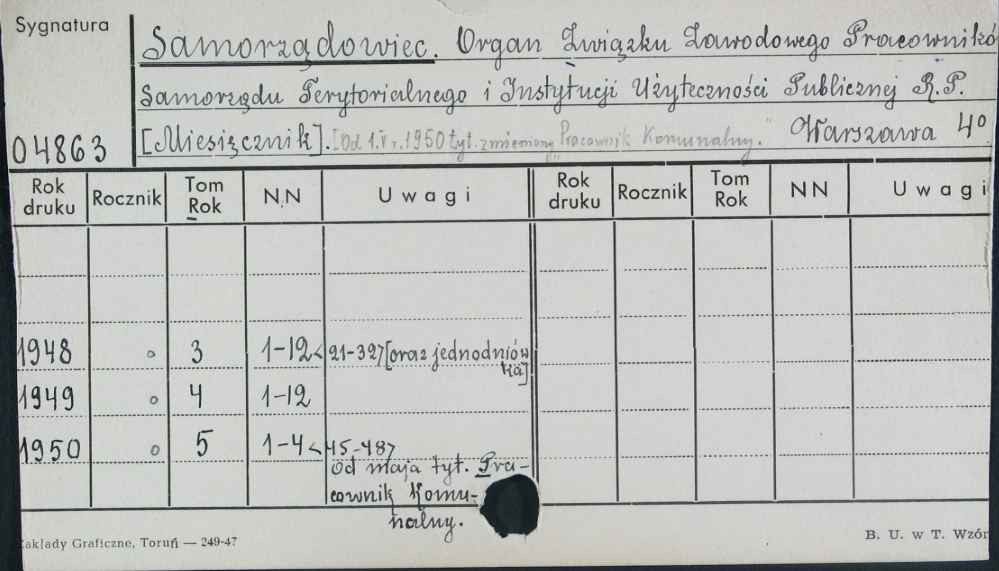 Sygnatura
Samorządowiec. Organ Związku Zawodowego Pracownikó
Samorządu Terytorialnego i Instytucji Użyteczności Publicznej R.P.
04863 [Miesięcznik]. [Od 1.V r. 1950 tyt. zmieniony "Pracownik Komunalny." Warszawa 4°
Rok druku Rocznik Tom Rok N.N Uwagi Rok druku Rocznik Tom Rok NN Uwagi
1948 ° 3 1-12 <21-32> [oraz jednodniów
ka]
1949 ° 4 1-12
1950 ° 5 1-4 <45-48>
Od maja tyt. Pra-
cownik Komu-
nalny.
akłady Graficzne, Toruń — 249-47 B. U. w T. Wzór